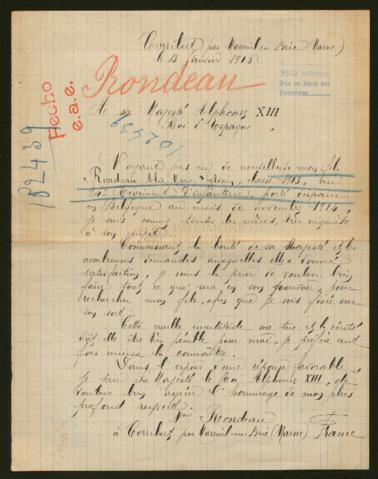 Corribert par Mareuil en Brie (Marne)
le 13 janvier 1915
Rondeau
Hecho
e.a.e.
Pide informes
A sa Majesté Alphonse XIII
Roi d'Espagne
Voyant pas eu de nouvelles de mon fils
Rondeau
Régiment d'Infanterie, porté disparu
en Belgique au mois de novembre 1914,
je suis comme toutes les mères, très inquiète
à son sujet.
Connaissant la bonté de sa Majesté et les
nombreuses demandes auxquelles elle a donné
satisfaction, je vous prie de vouloir bien
faire tout ce qui sera en son pouvoir, pour
rechercher mon fils, afin que je sois fixée sur
son sort.
Cette cruelle incertitude me tue et la vérité
elle être très pénible pour moi, je préfère cent
fois mieux la connaître.
Dans l'espoir d'une réponse favorable,
je prie Sa Majesté le Roi Alphonse XIII, de
vouloir bien agréer l'hommage de mon plus
profond respect.
Mme Rondeau
à Corribert par Mareuil-en-Brie (Marne) France